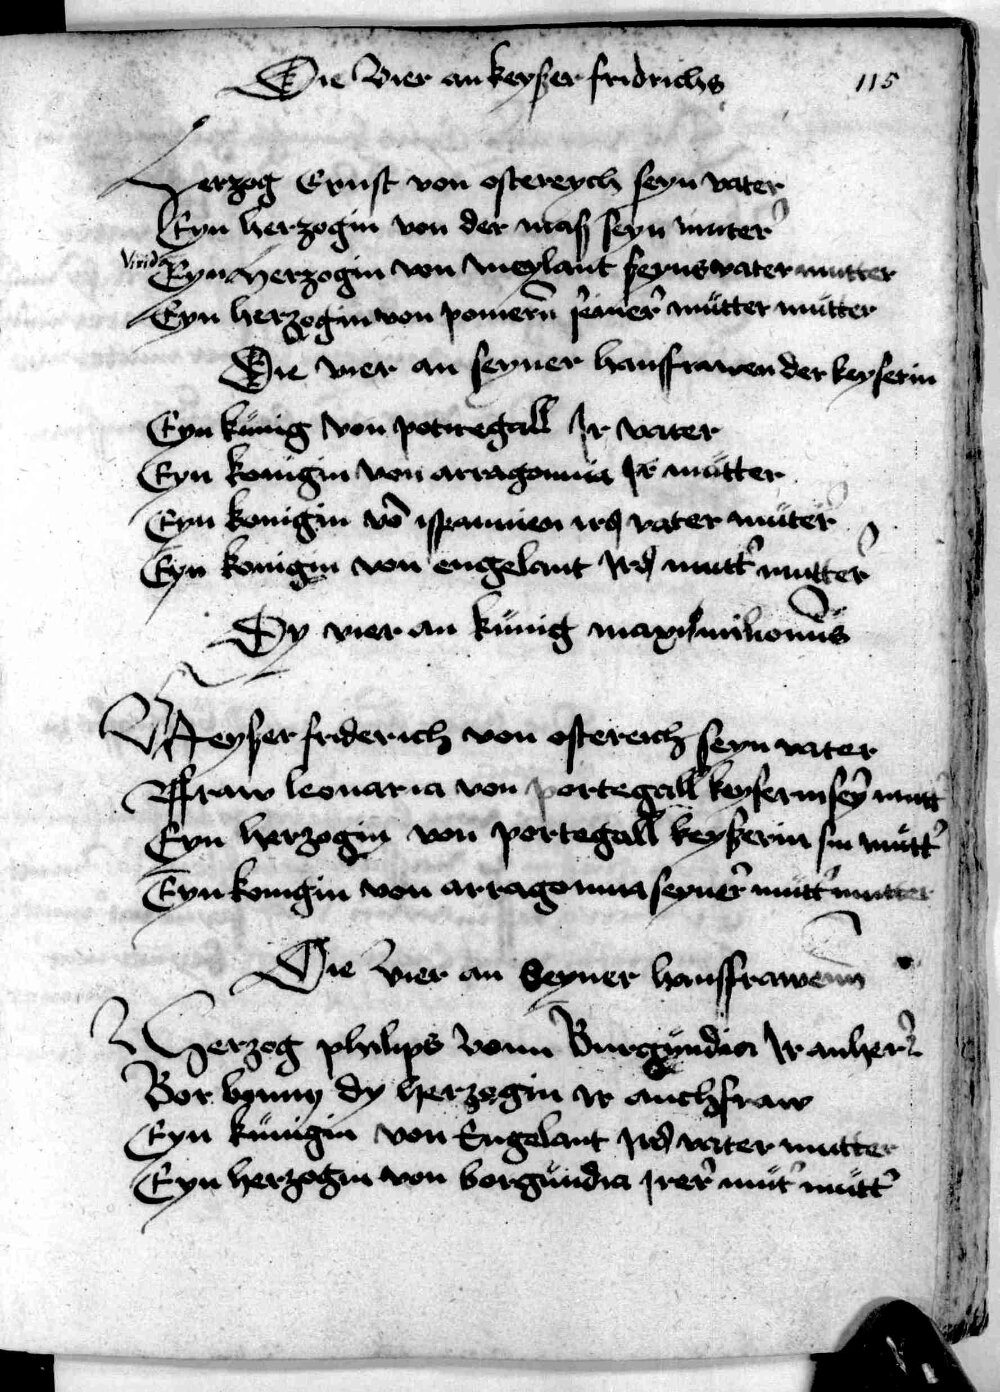 Die Vier an keyßer fridrichs
115
Herzog Ernst von ostereych seyn vater
Eyn herzogin von der maß seyn muter
Virida
Eyn herzogin von meylant seyns vater mutter
Eyn herzogin von pomern seiner mutter mutter
Die vier an seyner hausfrawen der keyserin
Eyn künig von potregall Ir vater
Eyn konigin von arragonnia Ir mutter
Eyn konigin vō ispannien irs vater muter
Eyn konigin von engelant Irs mutt mutter
Dy vier an künig maximilionus
Keyßer friderich von ostereich seyn vater
Ffraw leonaria von portegall keyserin sey mutt
Eyn herzogin von portegall keyßerin sin mutt
Eyn konigin von arragonnia seyner mutt mutter
Die Vier an Seyner hausfrawenn
Herzog philips Vonn Burgundia Ir anher
Bor bonny dy herzogin ir anchfraw
Eyn künigin von Engelant Irs vater mutter
Eyn herzogin von borgundia Irer mut mutt